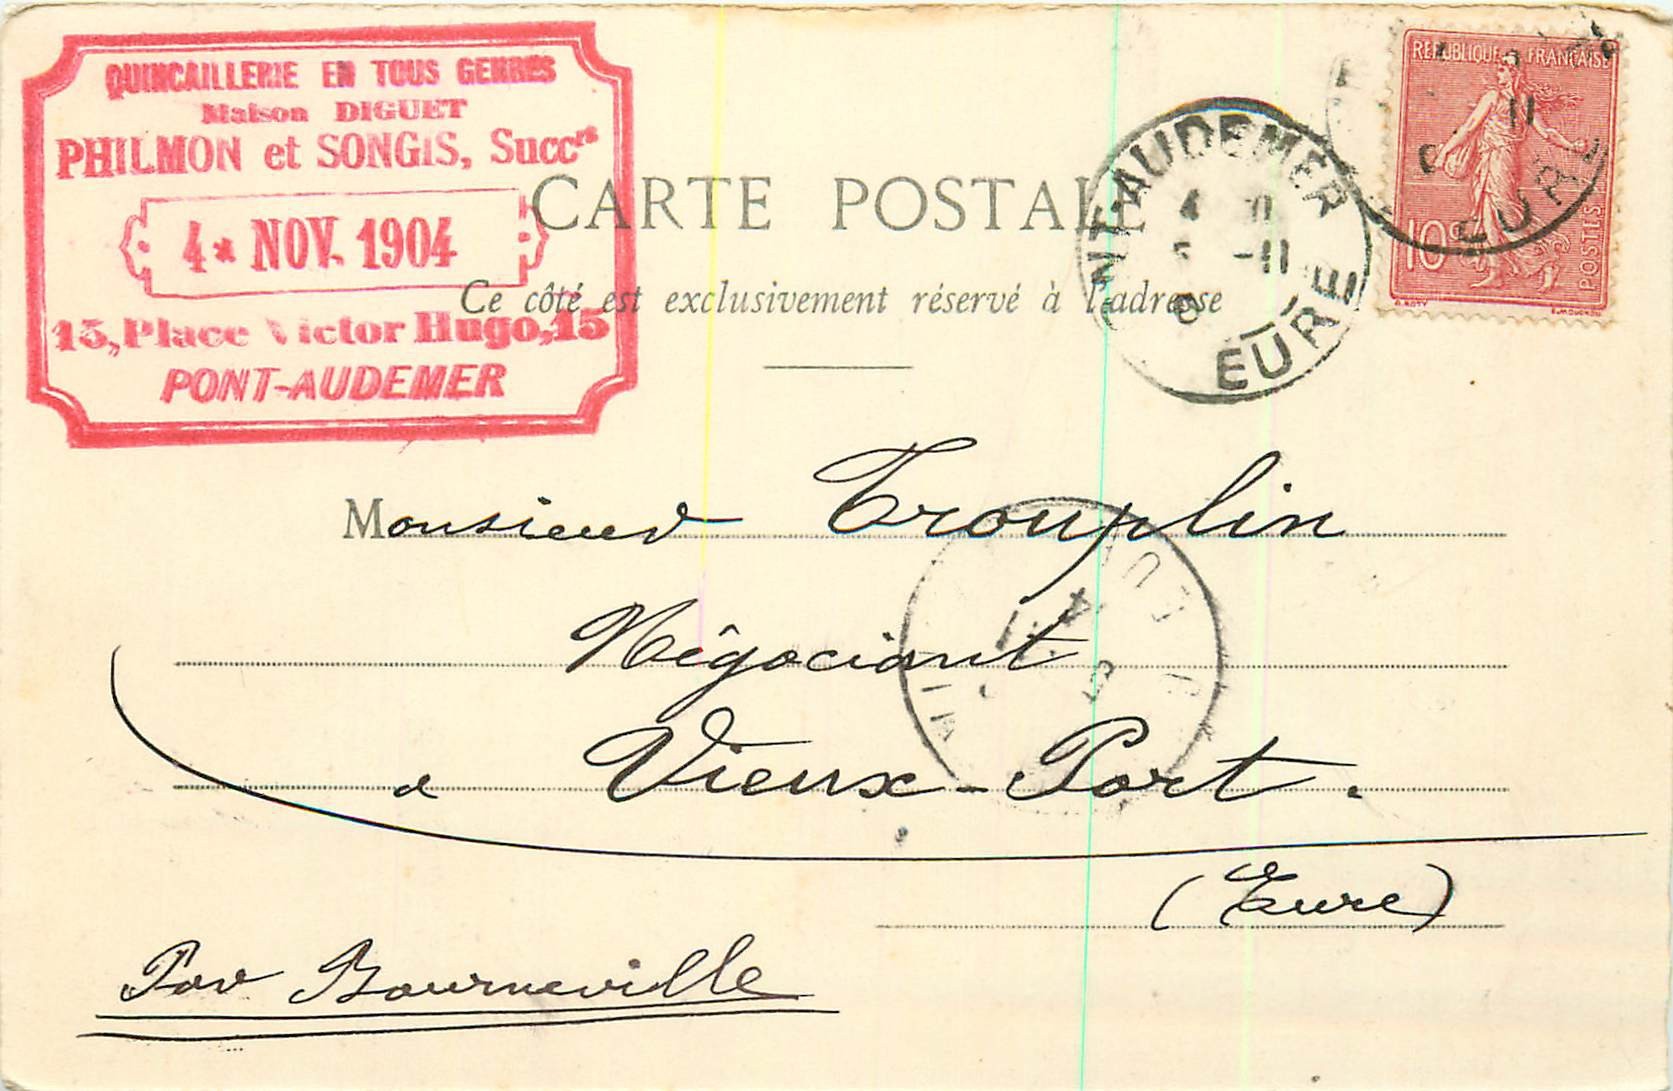 QUINCAILLERIE EN TOUS GENRES
Maison DIGUET
PHILMON et SONGIS, Succrs
4 * NOV. 1904
15, Place Victor Hugo, 15
PONT-AUDEMER
CARTE POSTALE
Ce côté est exclusivement réservé à l'adresse
PONT-AUDEMER
EURE
REPUBLIQUE FRANÇAISE
10c
POSTES
O. ROTY
E. MOUCHON
EURE
Monsieur Trouplin
Négociant
a Vieux-Port.
(Eure)
Par Bourneville